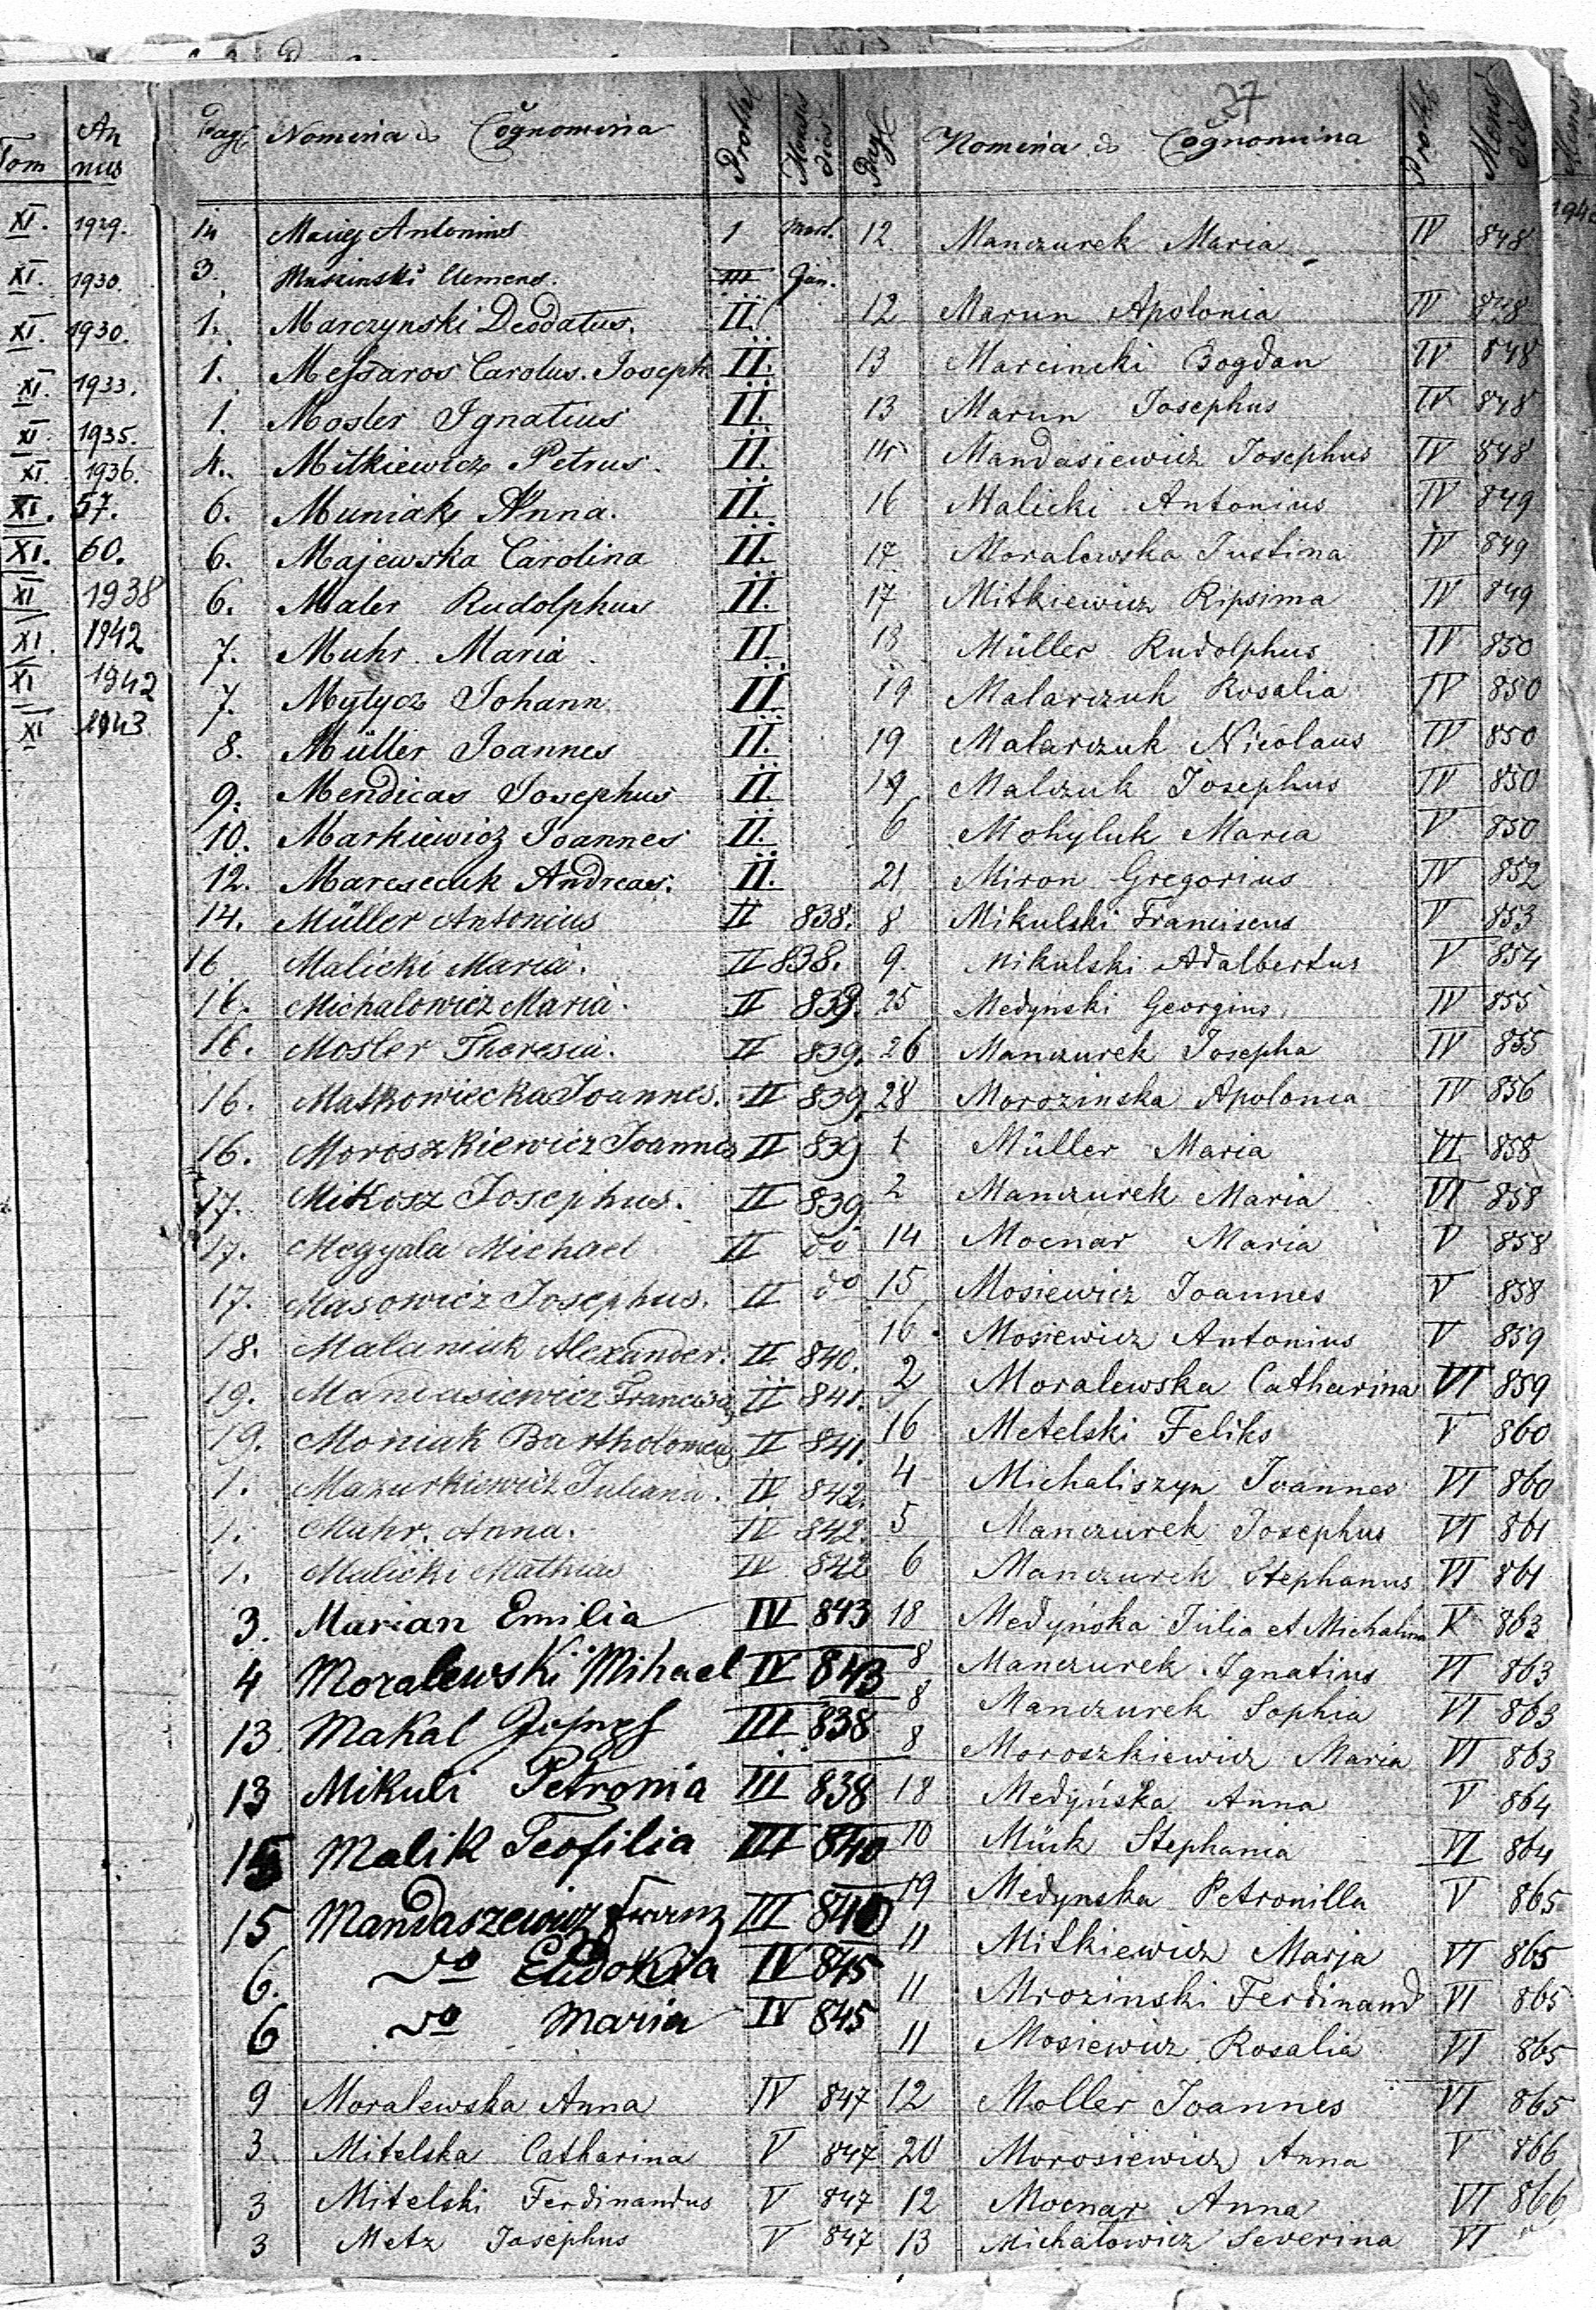 Tom Annus
XI. 1929.
XI. 1930.
XI. 1930.
XI. 1933.
XI. 1935.
XI. 1936.
XI. 57.
XI. 60.
XI 1938
XI. 1942
XI 1942
XI 1943
Pag Nomina & Cognomina Protk Mensis dies
14 Maciej Antonius 1 Mart.
3. Clemens. III Jan.
1. Marczynski Deodatus. II.
1. Messaros Carolus. Joseph II.
1. Mosler Ignatius II.
4. Mitkiewicz Petrus. II.
6. Muniak Anna. II.
6. Majewska Carolina II.
6. Maler Rudolphus II.
7. Muhr Maria II.
7. Mytycz Johann II.
8. Müller Joannes II.
9. Mendicas Josephus II.
10. Markiewicz Joannes II.
12. Andreas. II.
14. Müller Antonius II 838.
16 Malicki Maria. II 838.
16. Michalowicz Maria. II 839.
16. Mosler Theresia. II 839.
16. Matkowiecka Joannes. II 839
16. Moroszkiewicz Joannes II 839
17. Mikosz Josephus. II 839.
17. Megyala Michael II do
17. Masowicz Josephus. II do
18. Malaniuk Alexander. II 840.
19. Mandasiewicz II 841.
19. Moniak II 841.
1. Mazurkiewicz Juliana. IV 842.
1. Muhr. Anna. IV 842.
1. Malicki Mathias IV 842
3. Marian Emilia IV 843
4 Moralewski Mihael IV 843
13 Makal Josef III 838
13 Mikuli Petronia III 838
15 Malik Teofilia III 840
15 Mandaszewicz Franz III 840
6. do Eudokia IV 845
6 do Maria IV 845
9 Moralewska Anna IV 847
3. Mitelska Catharina V 847
3 Mitelski Ferdinandus V 847
3 Metz Josephus V 847
37
Pag Nomina & Cognomina Protk Mensis dies
12. Manczurek Maria IV 848
12 Marun Apolonia IV 848
13 Marcincki Bogdan IV 848
13 Marun Josephus IV 848
14 Mandasiewicz Josephus IV 848
16 Malicki Antonius IV 849
17 Moralewska Justina IV 849
17 Mitkiewicz Ripsima IV 849
18 Müller Rudolphus IV 850
19 Malarczuk Rosalia IV 850
19 Malarczuk Nicolaus IV 850
19 Malczuk Josephus IV 850
6 Mohyluk Maria V 850
21 Miron Gregorius IV 852
8 Mikulski Franciscus V 853
9. Mikulski Adalbertus V 854
25 Medyński Georgius IV 855
26 Manczurek Josepha IV 855
28 Morozinska Apolonia IV 856
1 Müller Maria VI 858
2 Manczurek Maria VI 858
14 Mocnar Maria V 858
15 Mosiewicz Joannes V 858
16. Mosiewicz Antonius V 859
2 Moralewska Catharina VI 859
16 Metelski Feliks V 860
4 Michaliszyn Joannes VI 860
5 Manczurek Josephus VI 861
6 Manczurek Stephanus VI 861
18 Medyńska Julia et Michalina V 863
8 Manczurek Ignatius VI 863
8 Manczurek Sophia VI 863
8 Moroszkiewicz Maria VI 863
18 Medyńska Anna V 864
10 Mück Stephania VI 864
19 Medynska Petronilla V 865
11 Mitkiewicz Marja VI 865
11 Mrozinski Ferdinand VI 865
11 Mosiewicz Rosalia VI 865
12 Moller Joannes VI 865
20 Morosiewicz Anna V 866
12 Mocnar Anna VI 866
13 Michalowicz Severina VI "